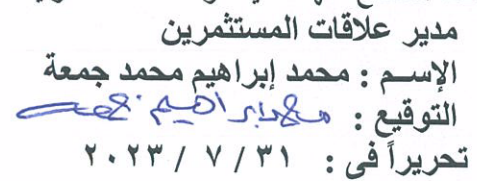 مدير علاقات المستثمرين
الإسم : محمد إبراهيم محمد جمعة
التوقيع : محمد ابراهيم جمعه
تحريراً فى : ٣١ / ٧ / ٢٠٢٣